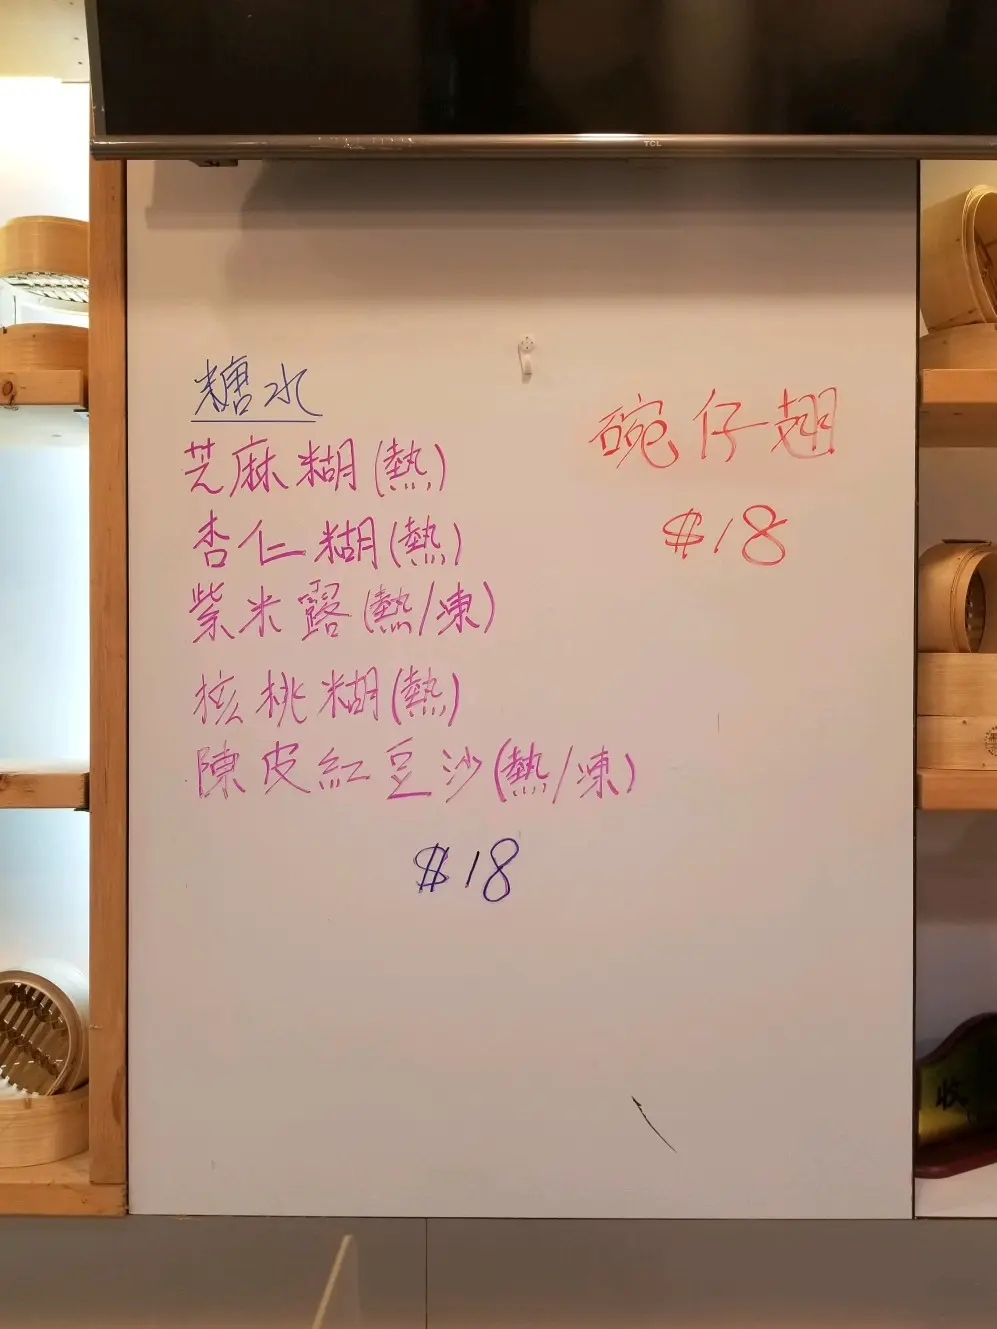 TCL
糖水
芝麻糊(熱)
杏仁糊(熱)
紫米露(熱/凍)
核桃糊(熱)
陳皮紅豆沙(熱/凍)
$18
碗仔翅
$18